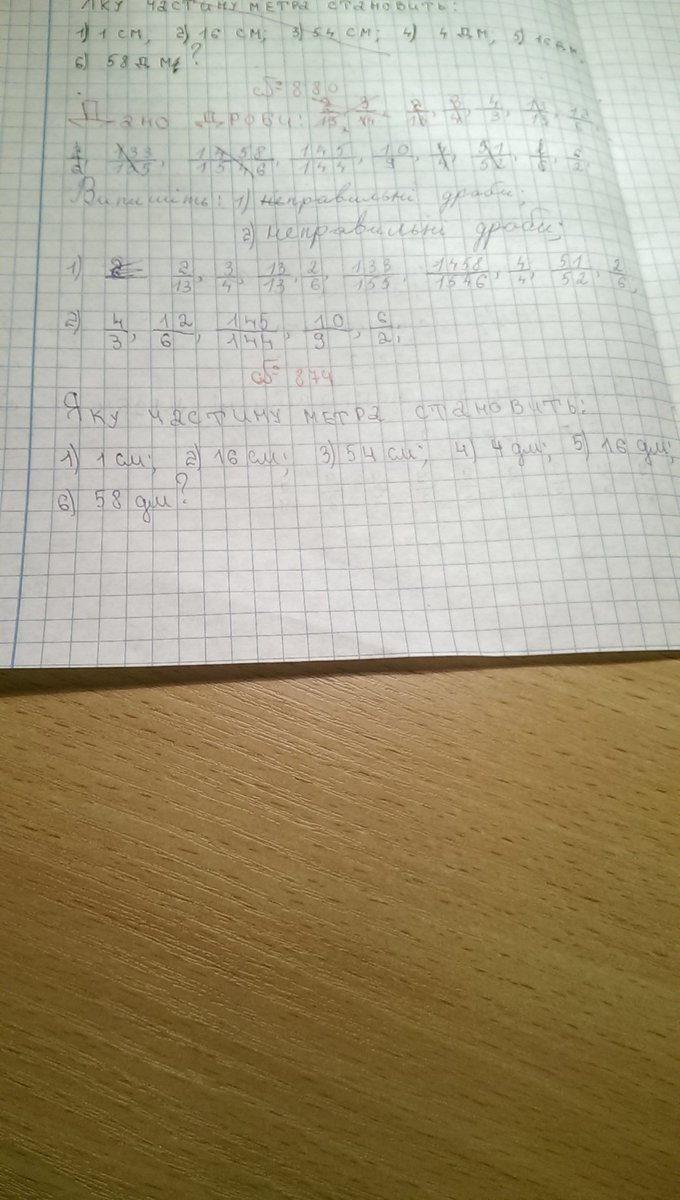 Яку частину метра становить:
1) 1 см, 2) 16 см; 3) 54 см; 4) 4 дм, 5) 16 дм.
6) 58 дм?
№ 880
Дано дроби: 4/3, 12/6,
133/155, 1458/1546, 145/144, 10/9, 4/4, 51/52, 6/2,
Випишіть: 1) неправильні дроби;
2) неправильні дроби;
1) 2/13, 3/4, 13/13, 2/6, 133/155, 1458/1546, 4/4, 51/52, 2/6,
2) 4/3, 12/6, 145/144, 10/9, 6/2;
№ 874
Яку частину метра становить:
1) 1 см; 2) 16 см; 3) 54 см; 4) 4 дм; 5) 16 дм;
6) 58 дм?